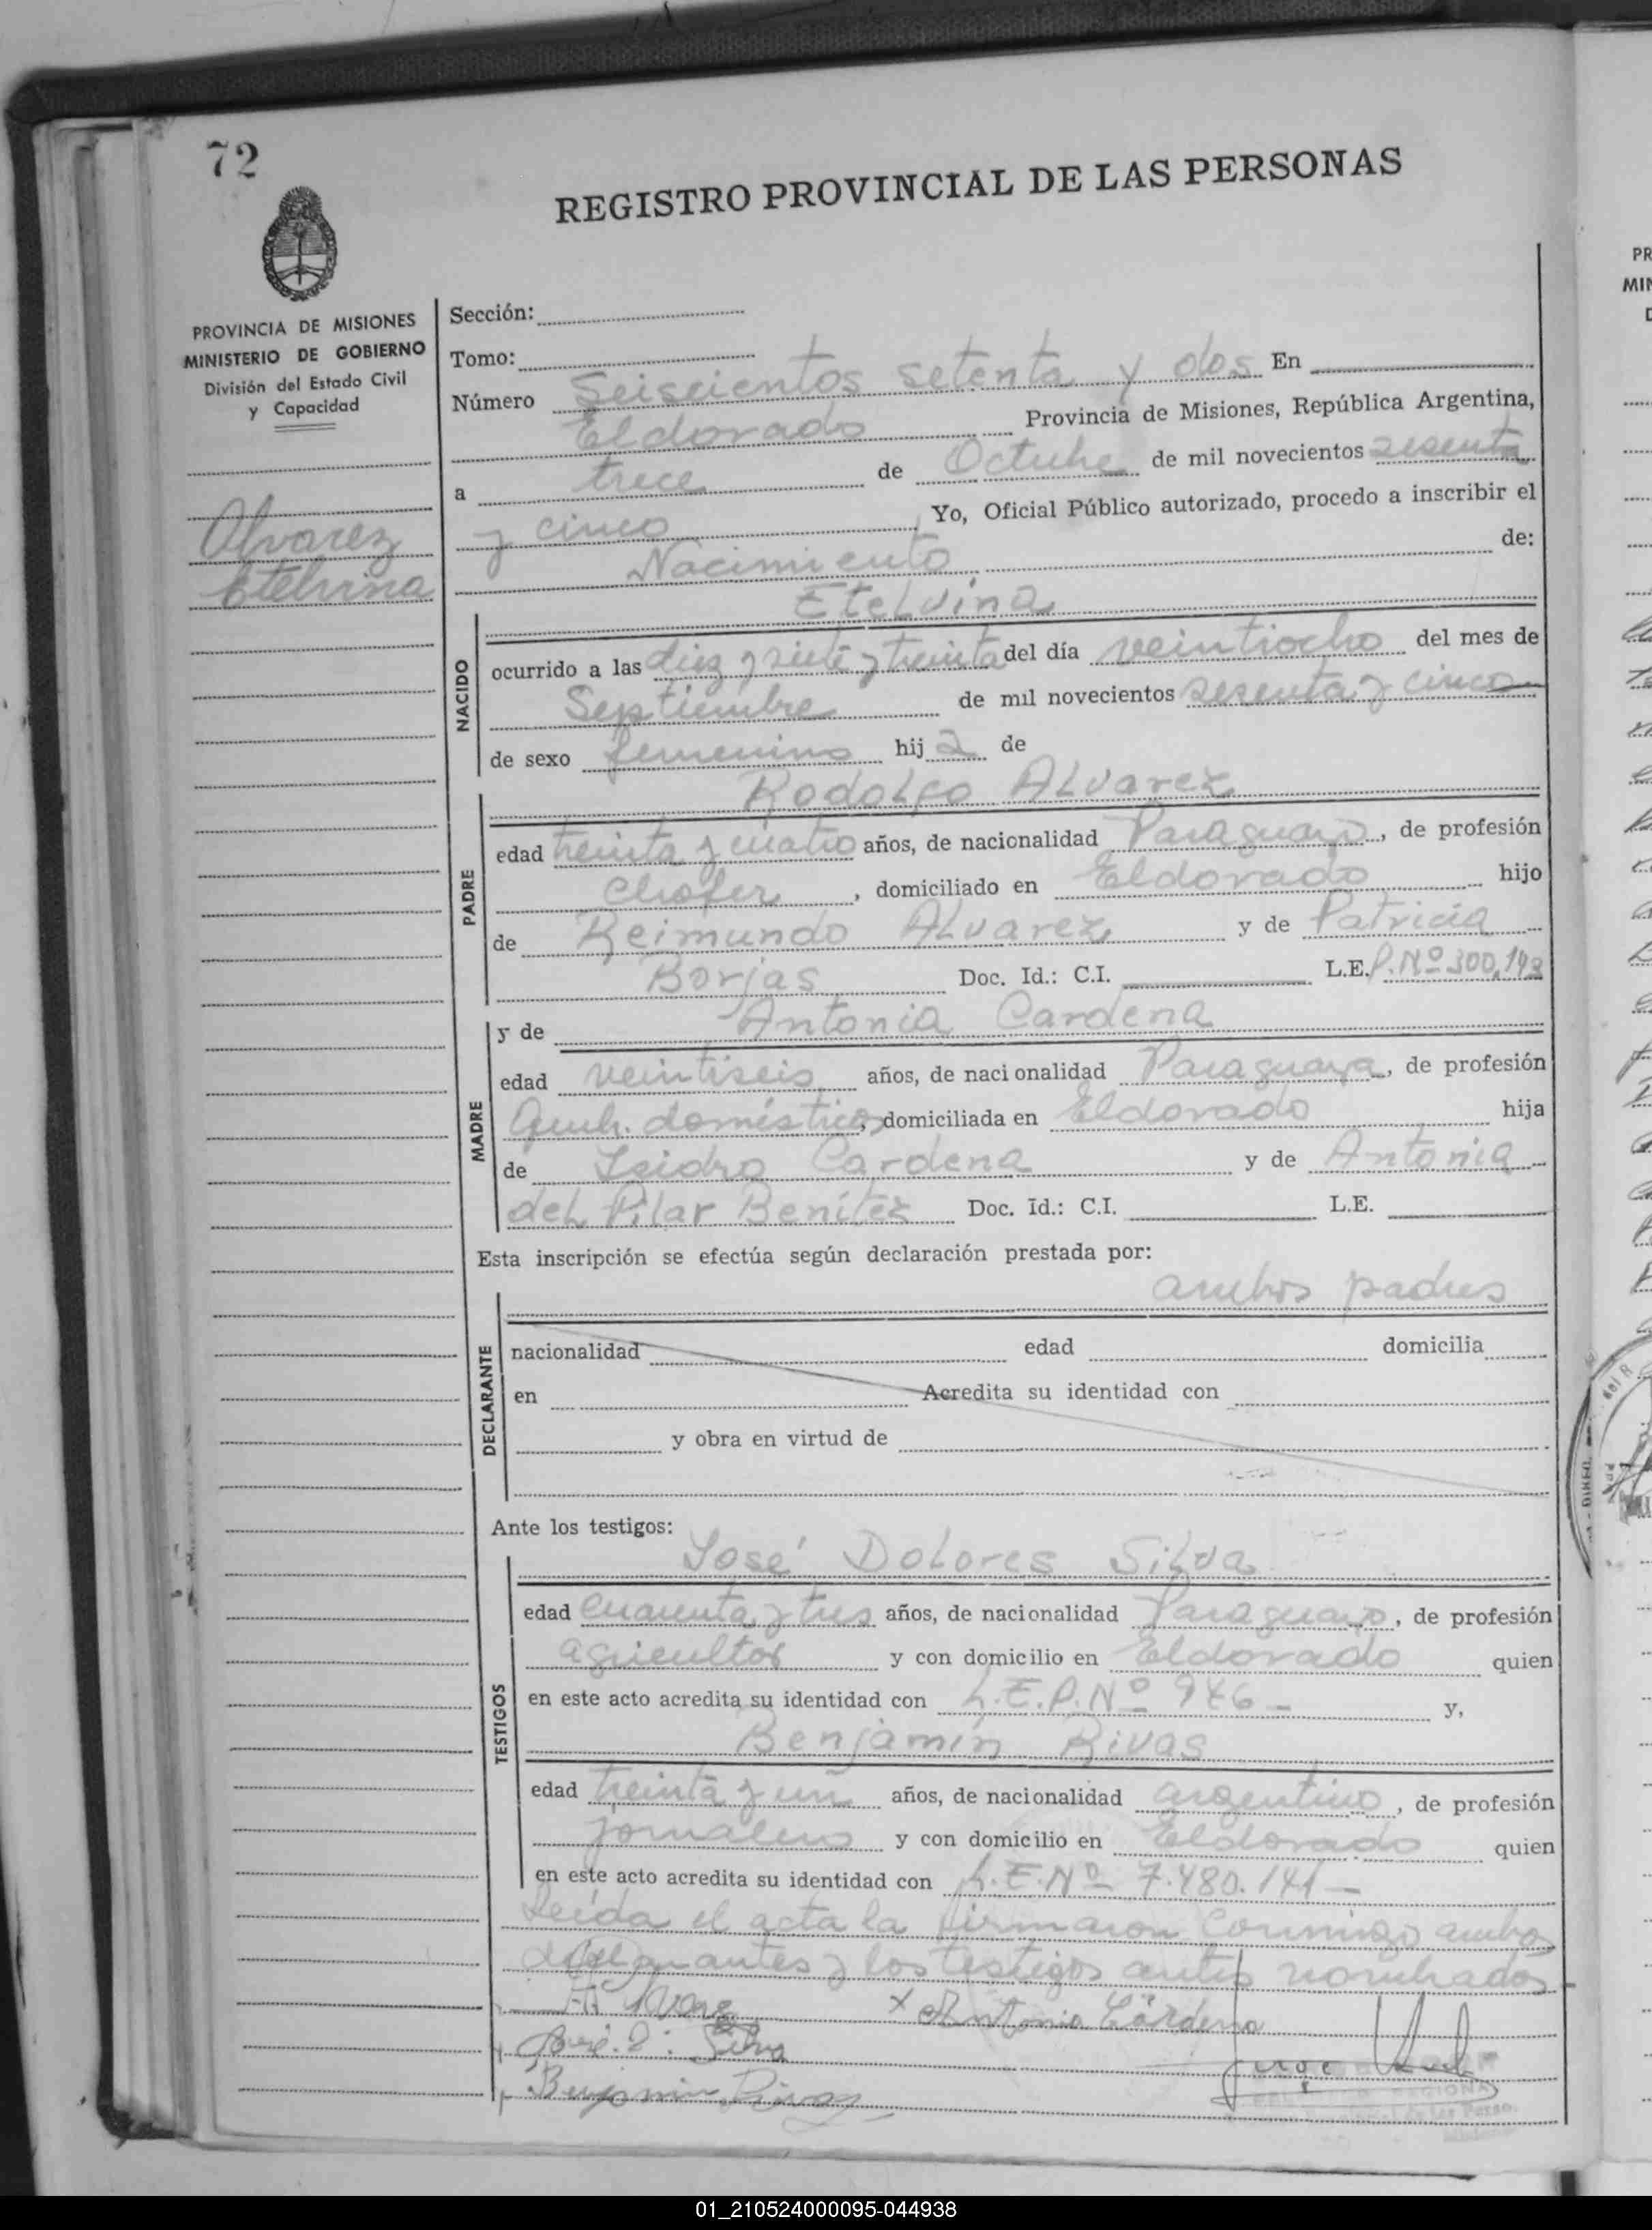 72
REGISTRO PROVINCIAL DE LAS PERSONAS
PROVINCIA DE MISIONES
MINISTERIO DE GOBIERNO
División del Estado Civil
y Capacidad
Alvarez
Etelvina
Sección:
Tomo:
Número Seiscientos setenta y dos En
Eldorado Provincia de Misiones, República Argentina,
a trece de Octubre de mil novecientos sesenta
y cinco Yo, Oficial Público autorizado, procedo a inscribir el
Nacimiento de:
Etelvina
NACIDO
ocurrido a las diez y siete y treinta del día veintiocho del mes de
Septiembre de mil novecientos sesenta y cinco
de sexo femenino hija de
Rodolfo Alvarez
PADRE
edad treinta y cuatro años, de nacionalidad Paraguayo, de profesión
Chofer, domiciliado en Eldorado hijo
de Reimundo Alvarez y de Patricia
Borjas Doc. Id.: C.I. L.E. P. Nº 300.143
y de Antonia Cardena
MADRE
edad veintiseis años, de nacionalidad Paraguaya, de profesión
Queh. domésticos, domiciliada en Eldorado hija
de Isidro Cardena y de Antonia
del Pilar Benítez Doc. Id.: C.I. L.E.
Esta inscripción se efectúa según declaración prestada por:
ambos padres
DECLARANTE
nacionalidad edad domicilia
en Acredita su identidad con
y obra en virtud de
Ante los testigos:
José Dolores Silva
TESTIGOS
edad cuarenta y tres años, de nacionalidad Paraguayo, de profesión
agricultor y con domicilio en Eldorado quien
en este acto acredita su identidad con L.E.P. Nº 946 - y,
Benjamín Rivas
edad treinta y un años, de nacionalidad argentino, de profesión
jornalero y con domicilio en Eldorado quien
en este acto acredita su identidad con L.E. Nº 7.480.141 -
Leída el acta la firmaron conmigo ambos
declarantes y los testigos antes nombrados
x Antonia Cárdena
José. D. Silva
Benjamin Rivas
Jorge
PR
MIN
01_210524000095-044938